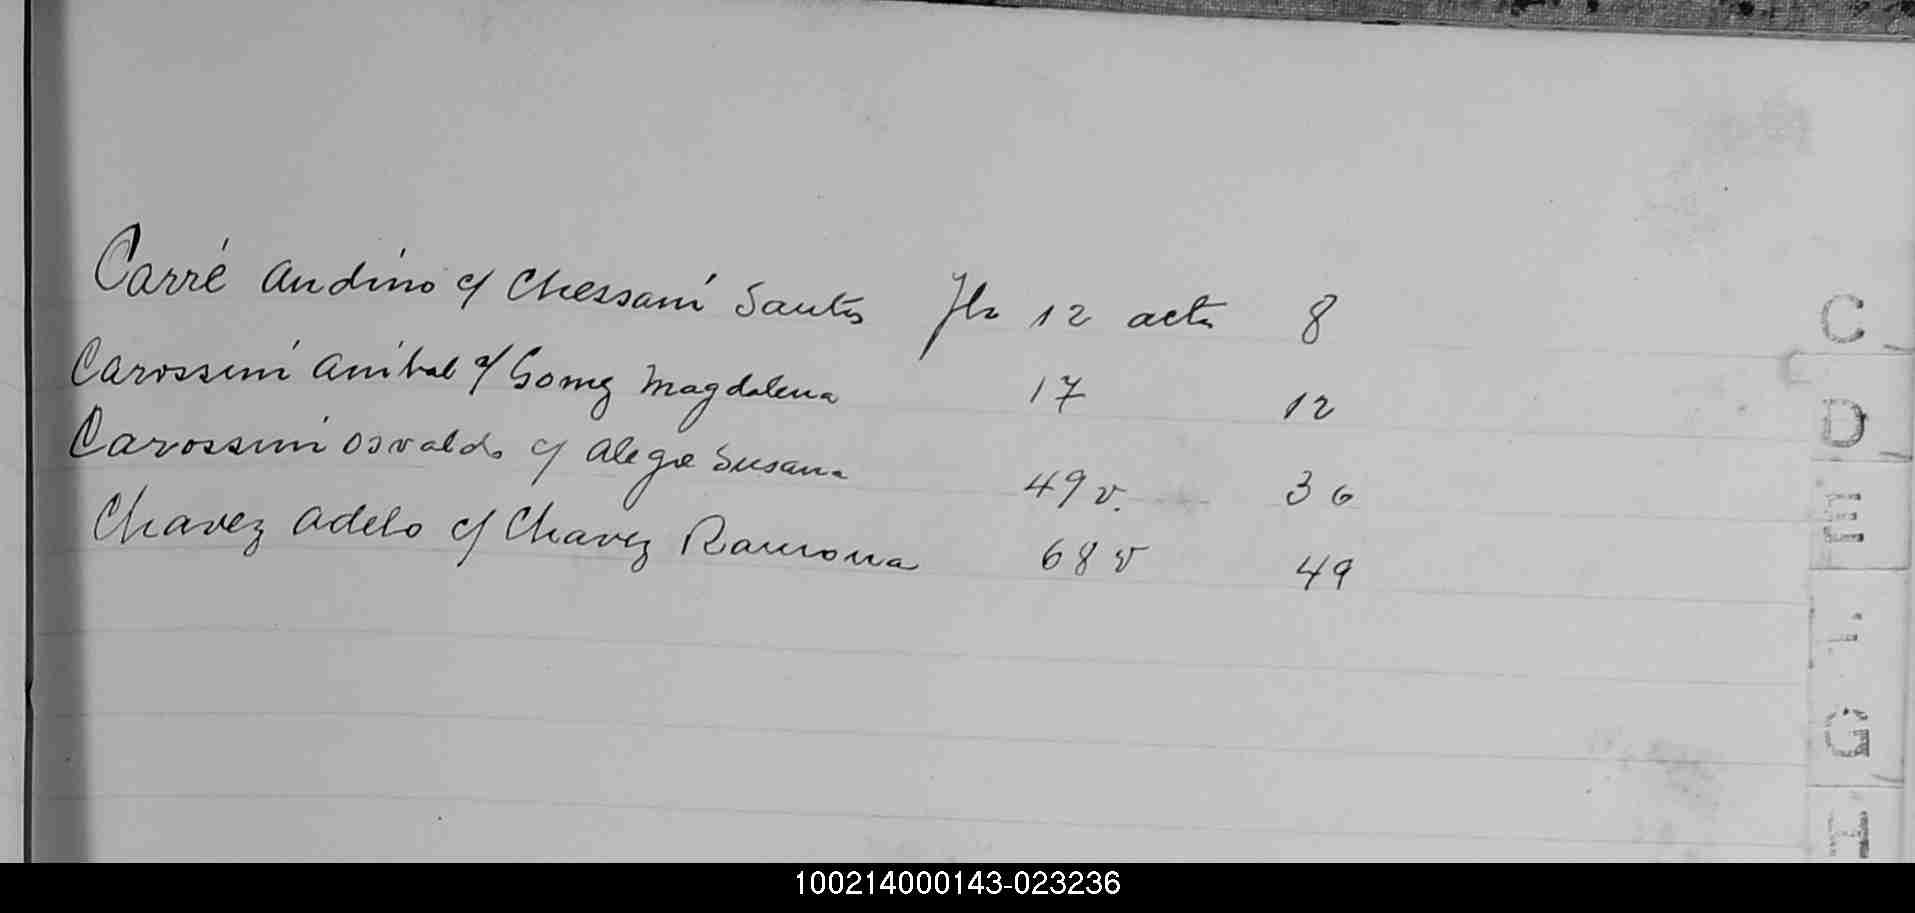 Carré Andino c/ Chessani Santos Flo 12 acta 8
Carossini Anibal c/ Gomez Magdalena 17 12
Carossini Osvaldo c/ Alegre Susana 49 v. 36
Chavez Adelo c/ Chavez Ramona 68 v 49
C
D
E
G
H
100214000143-023236